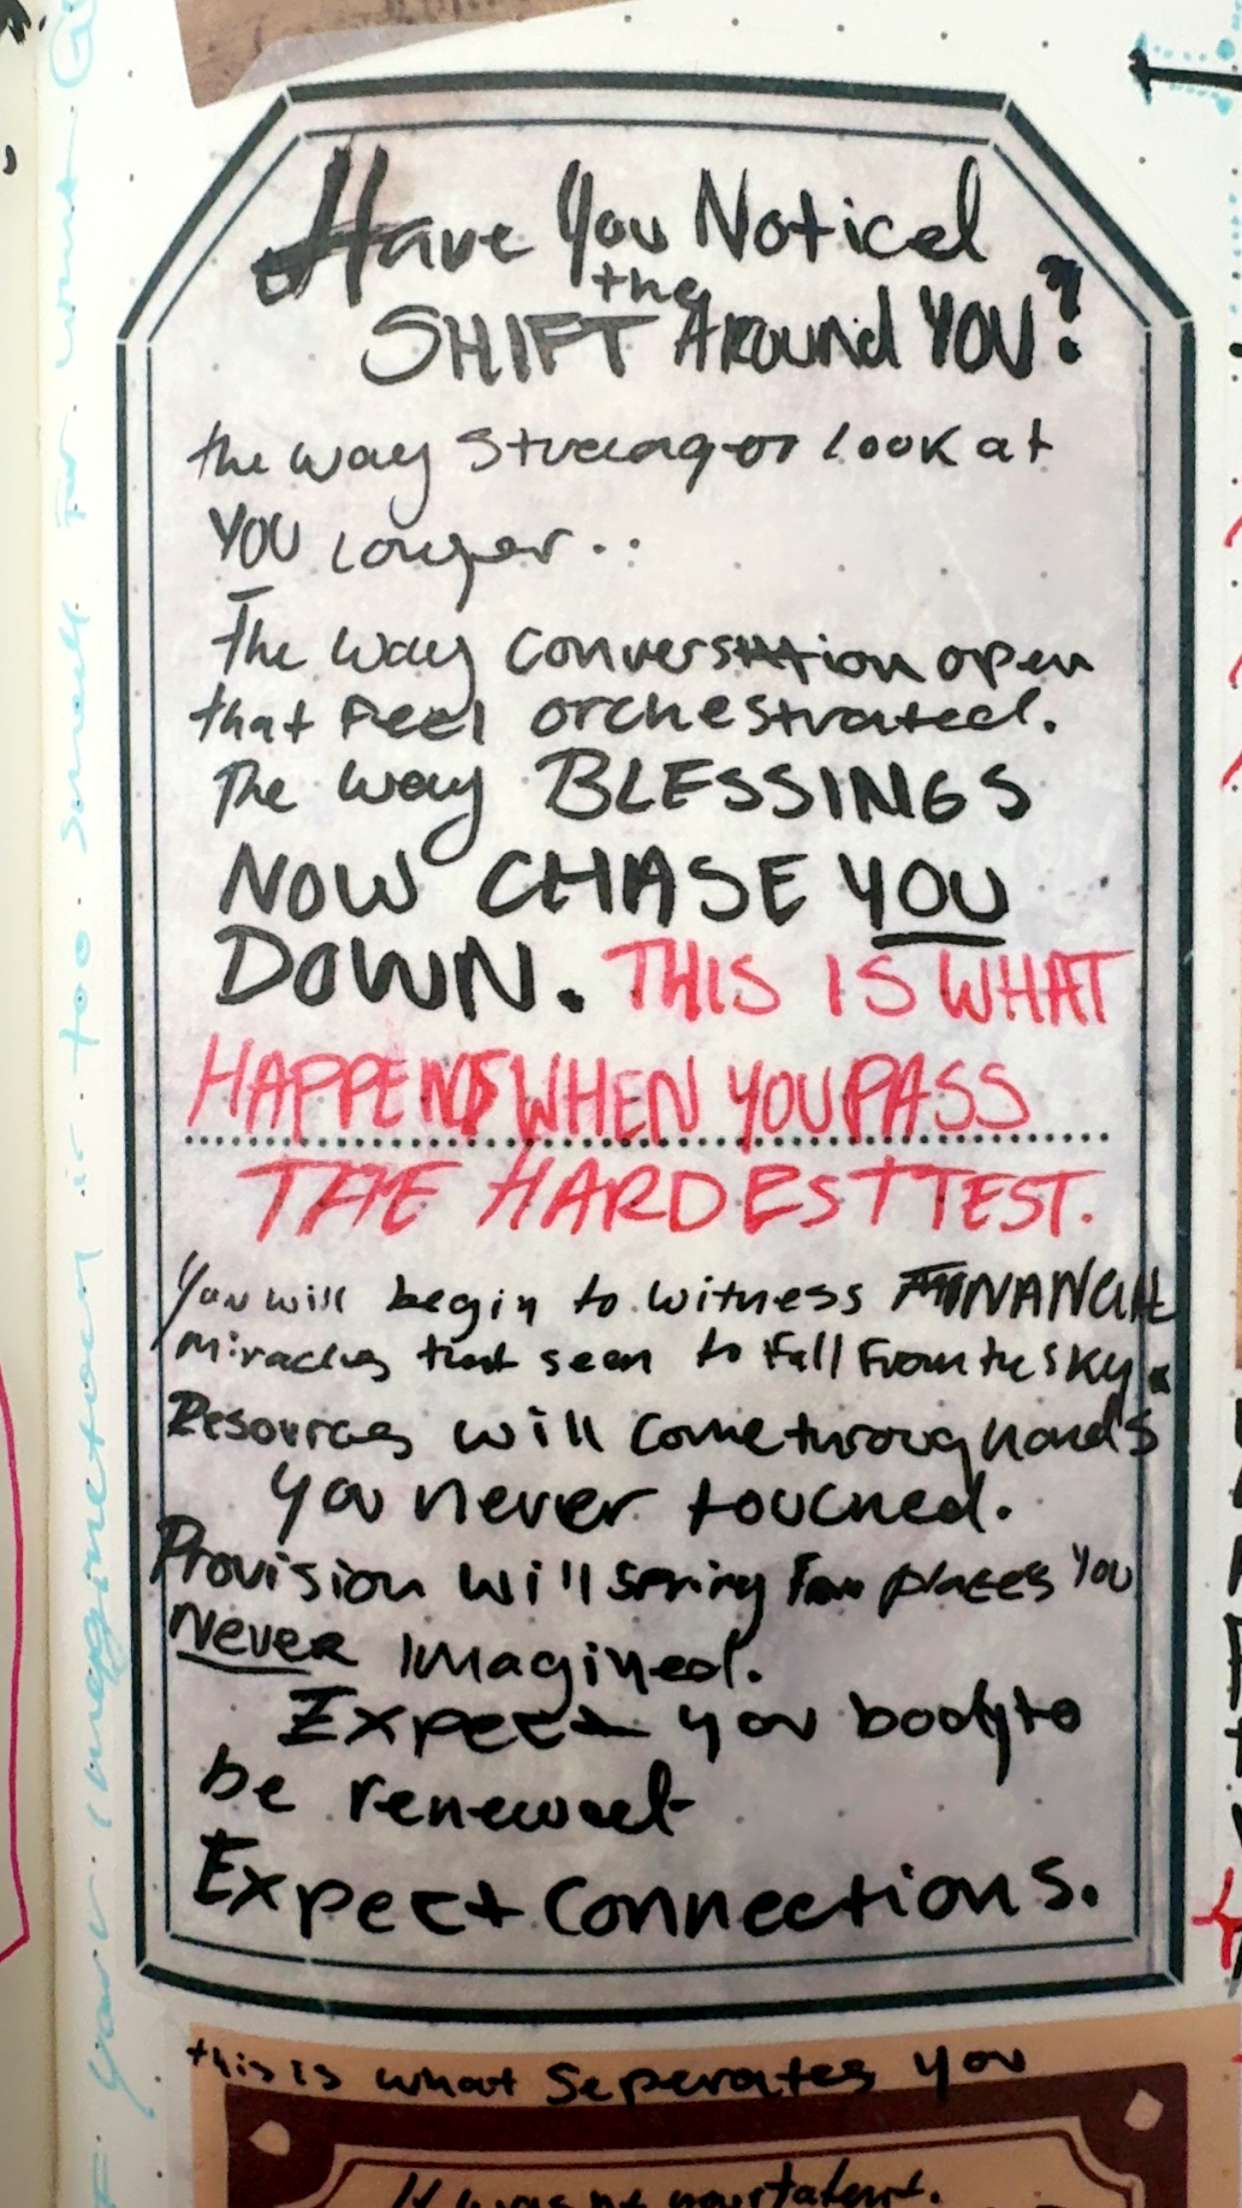 Have You Noticed
the
SHIFT Around YOU?
the way Stranger look at
YOU Longer..
The way conversation open
that Feel orchestrated.
The way BLESSINGS
NOW CHASE YOU
DOWN. THIS IS WHAT
HAPPENS WHEN YOU PASS
THE HARDEST TEST.
You will begin to witness FINANCIAL
miracles that seem to fall From the sky.
Resources will come through hands
you never touched.
Provision will spring from places You
Never Imagined.
Expect you body to
be renewed
Expect connections.
this is what Seperates you
It was not your talent.
your imagination is too small for what